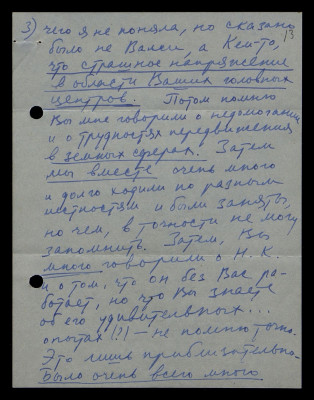 3) чего я не поняла, но сказано
13
было не Вами, а Кем-то,
что страшное напряжение
в области Ваших головных
центров. Потом помню
Вы мне говорили о недомогании
и о трудностях передвижения
в земных сферах. Затем
мы вместе очень много
и долго ходили по разным
местностям и были заняты,
но чем, в точности не могу
запомнить. Затем, Вы
много говорили о Н.К.
и о том, что он без Вас ра-
ботает, но что Вы знаете
об его удивительных...
опытах (?) – не помню точно.
Это лишь приблизительно.
Было очень всего много